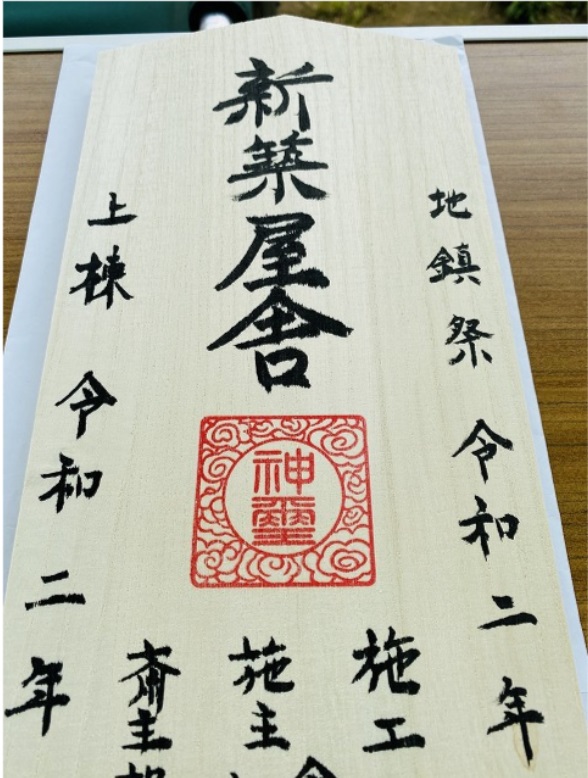 新築屋舎
神璽
地鎮祭 令和二年
施工
施主
斎主
上棟 令和二年